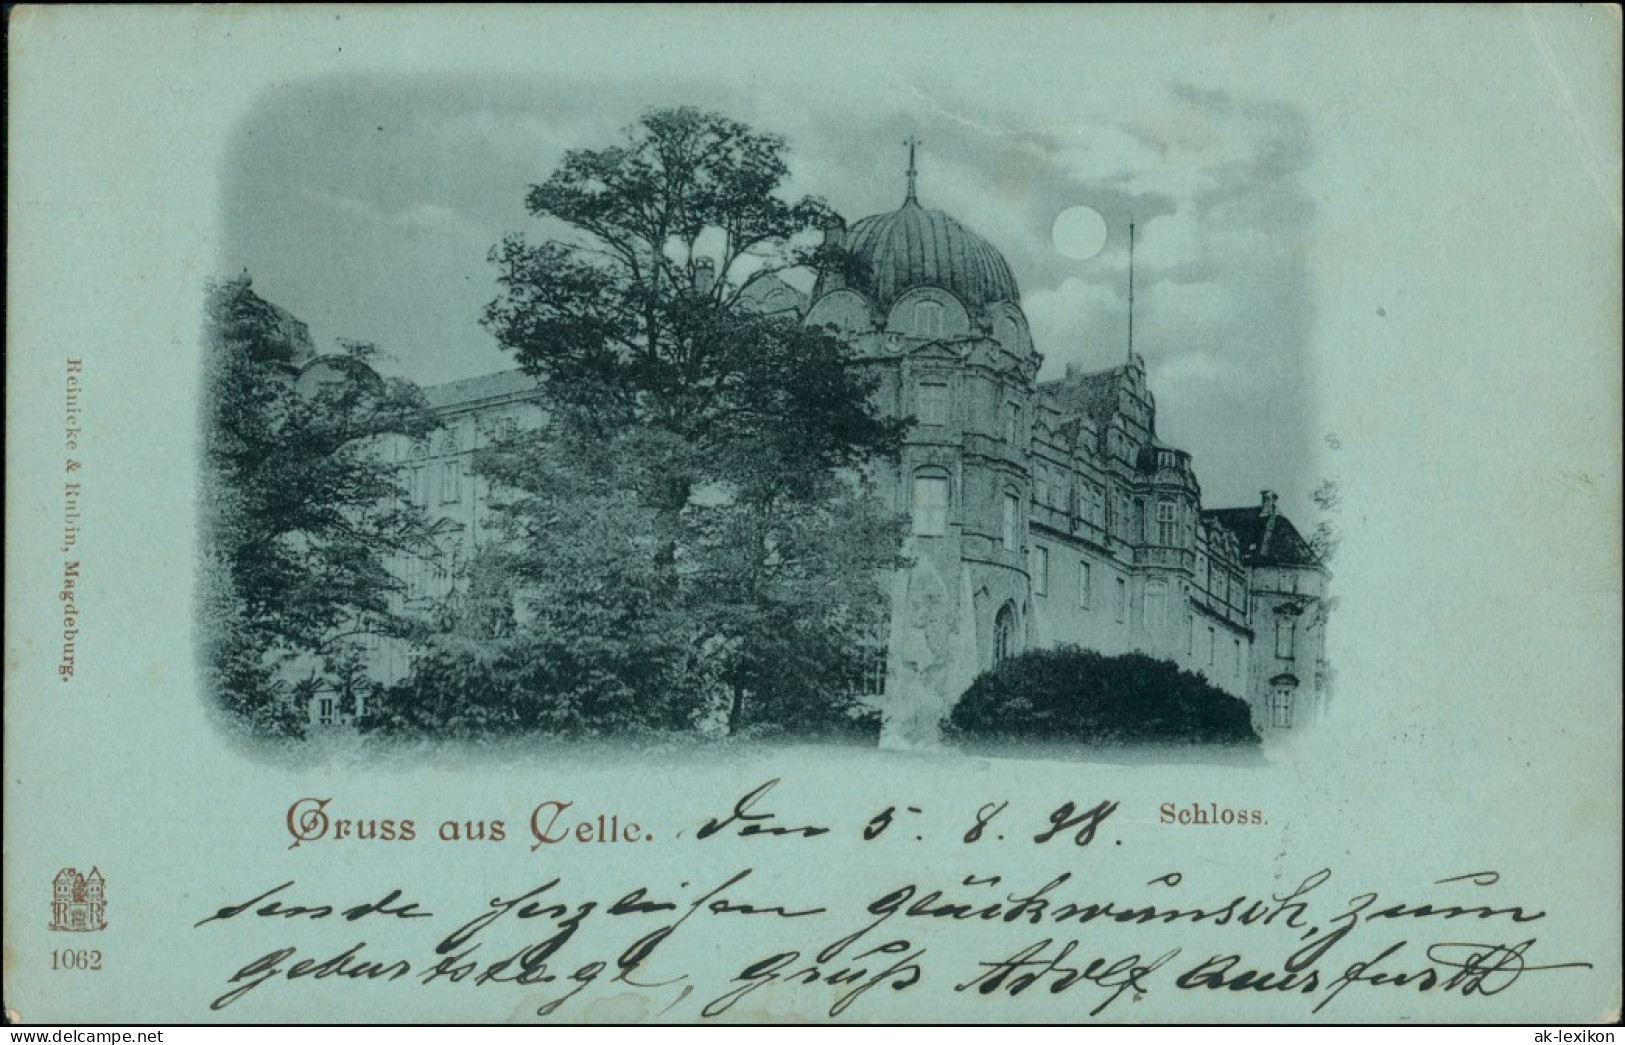 Reinicke & Rubin, Magdeburg.
Gruss aus Celle. Den 5. 8. 98. Schloss.
sende herzleihsen Glückwünsch, zum
Geburtstage, Gruß Adolf Auerfurth
R R
1062
ak-lexikon